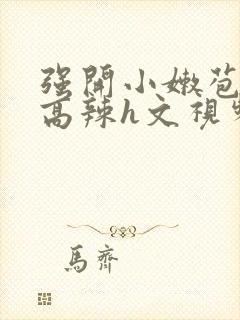 强開小嫩苞
高辣h文視
馬齊